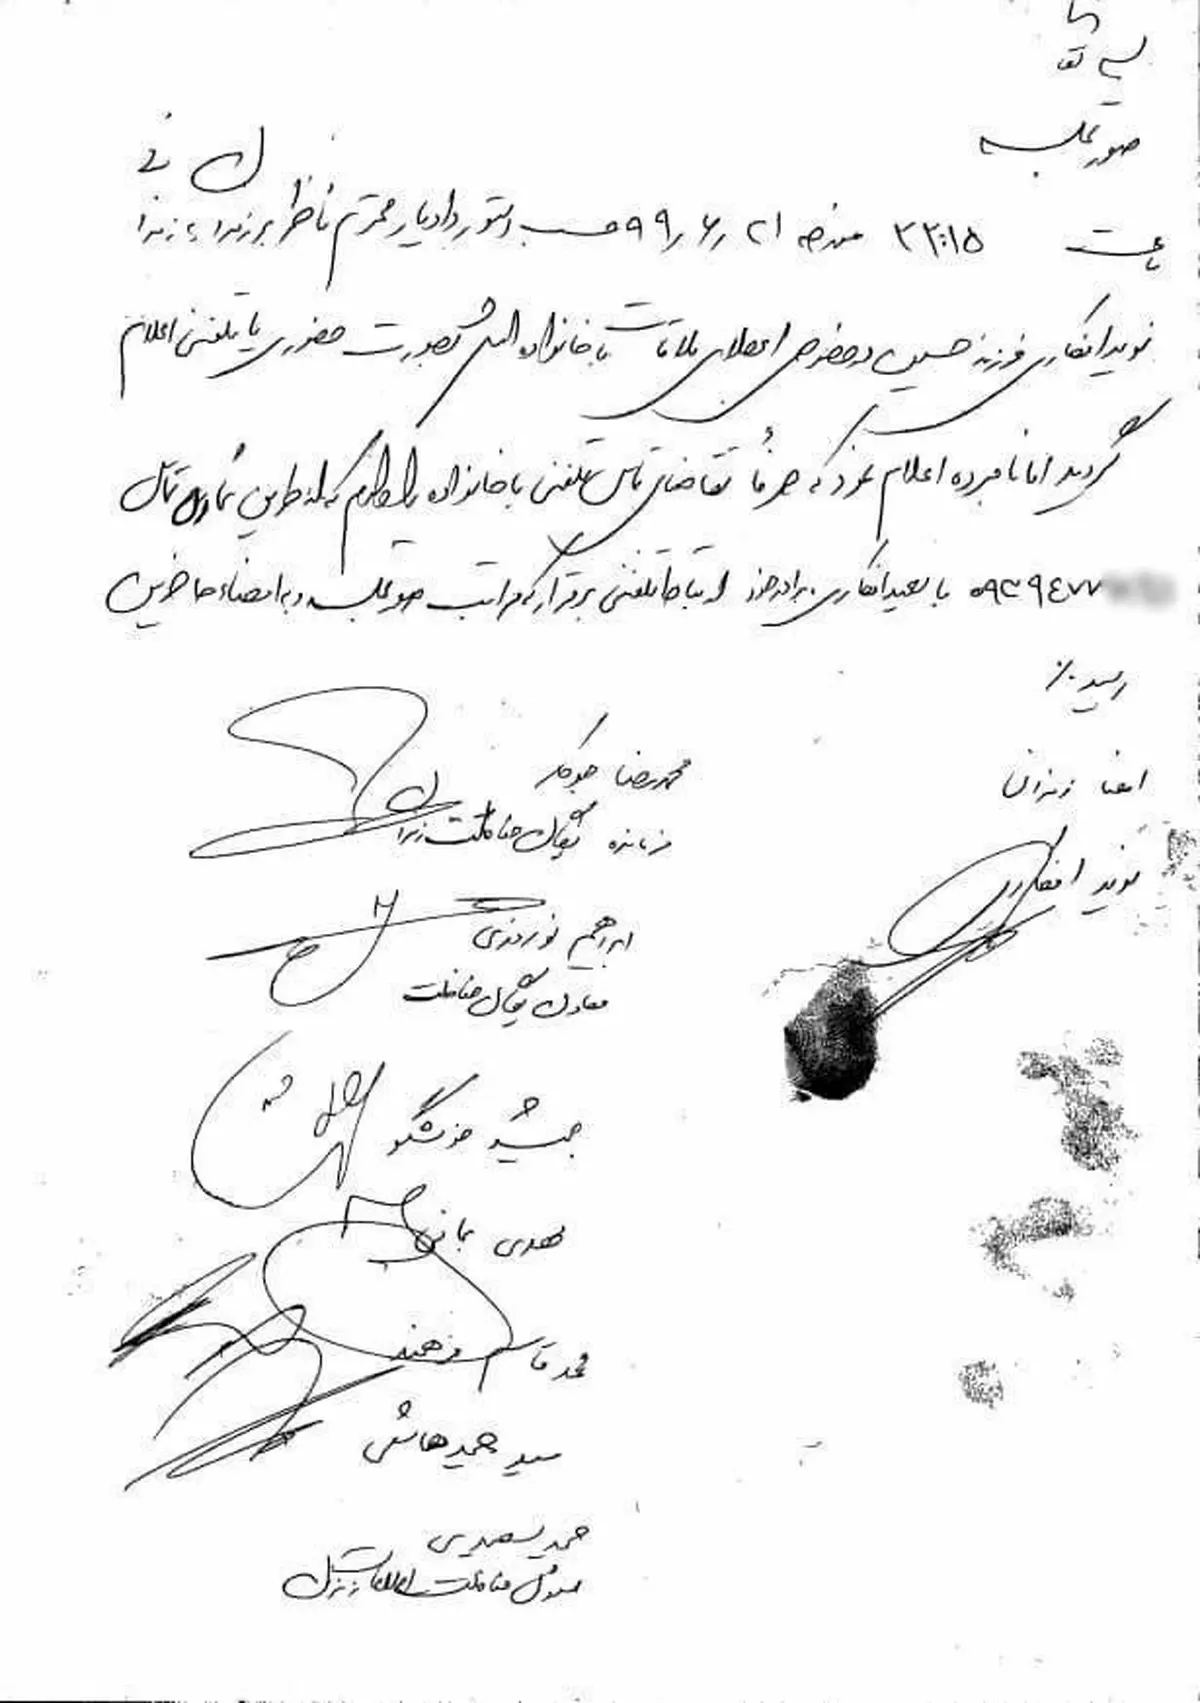 بسمه تعالی
صورتجلسه
ساعت ۲۲:۱۵ مورخه ۹۹٫۶٫۲۱ حسب دستور دادیار محترم ناظر بر زندان به زندانی
نوید افکاری فرزند حسین در خصوص اعطای ملاقات با خانواده اش بصورت حضوری یا تلفنی اعلام
گردید اما نامبرده اعلام نمود که صرفاً تقاضای تماس تلفنی با خانواده را دارم که از طریق شماره تماس
۰۹۳۹۴۷۷ با سعید افکاری برادر خود ارتباط تلفنی برقرار که مراتب صورتجلسه و به امضاء حاضرین
رسید.٪
امضا زندانی
نوید افکاری
محمدرضا جوکار
فرمانده یگان حفاظت زندان
ابراهیم نوروزی
معاون یگان حفاظت
جمشید خوشگو
مهدی
محمد قاسم
سید حمید هاشمی
حمید سعیدی
مسئول حفاظت اطلاعات زندان